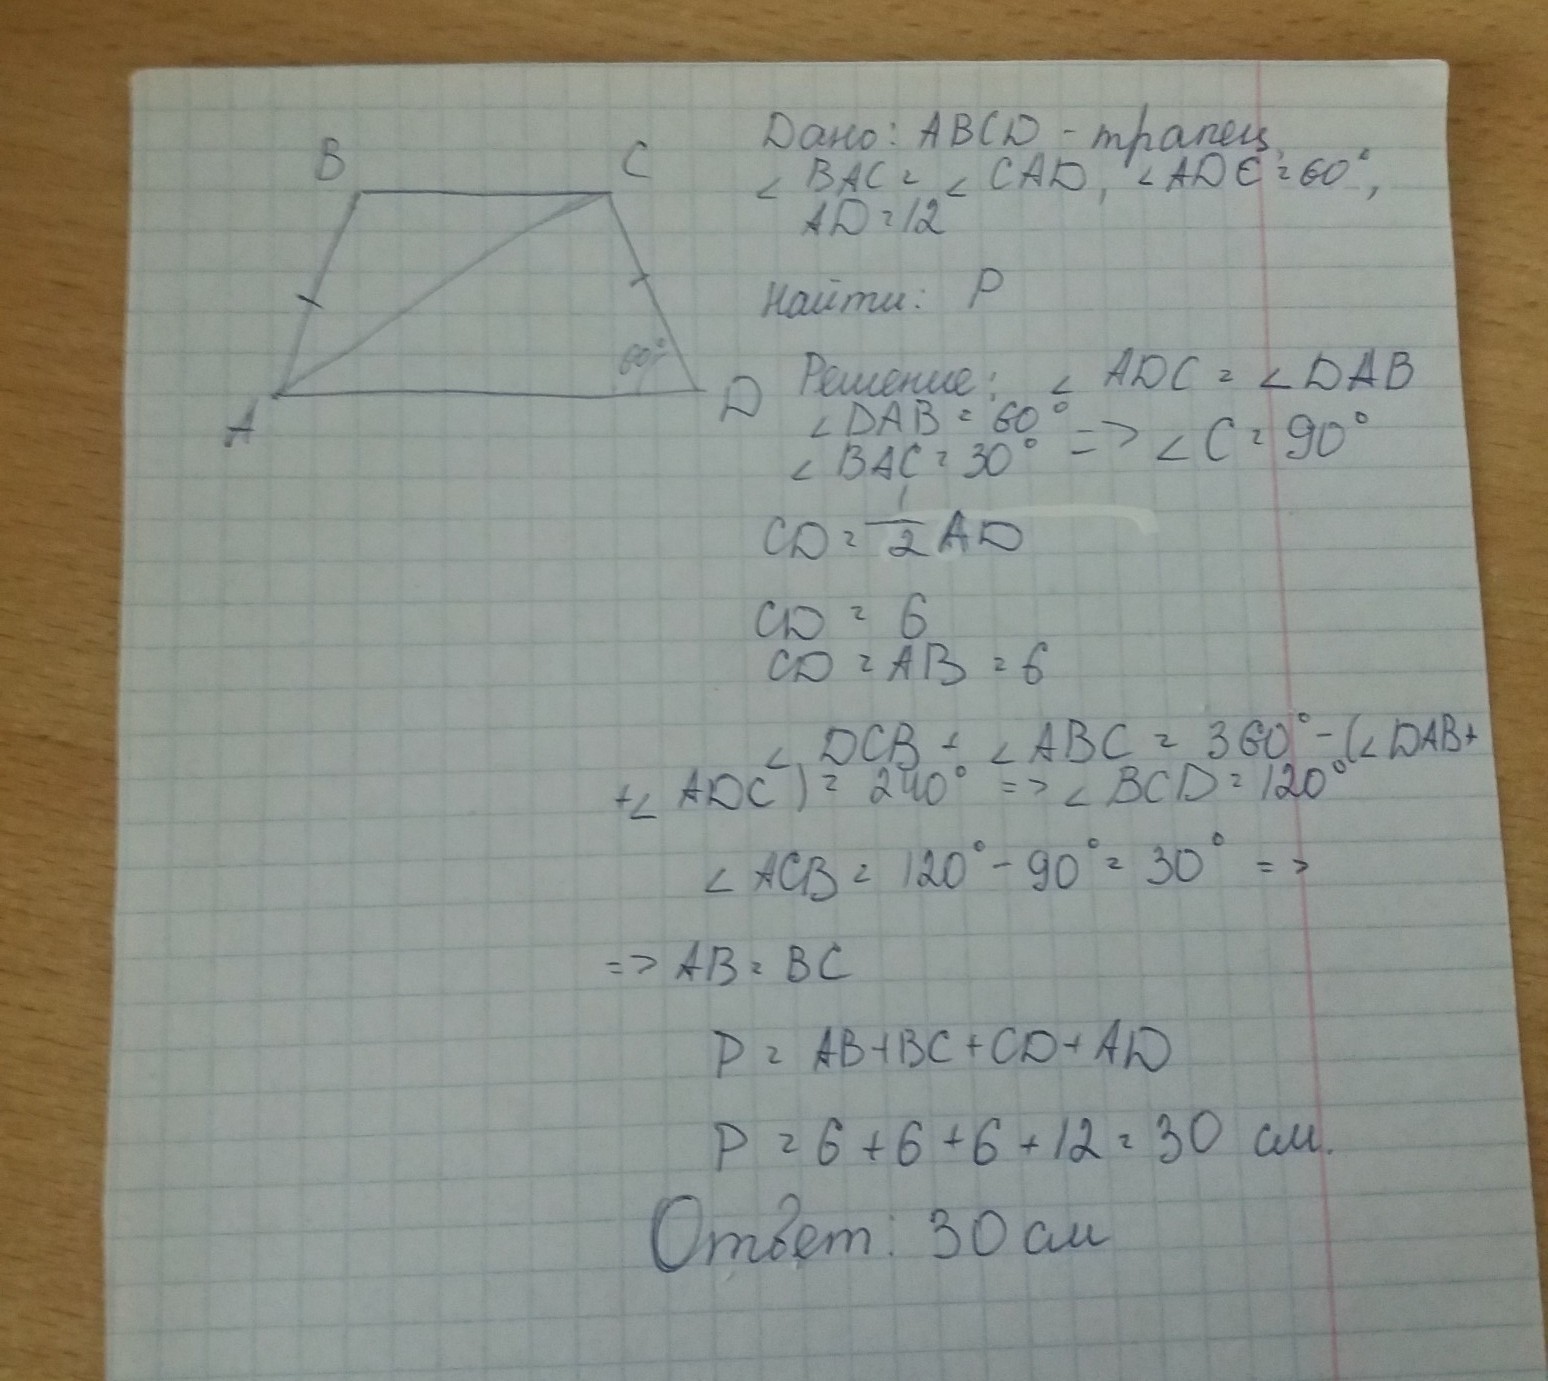 B
C
A
D
60°
Дано: ABCD - трапец.
∠ BAC = ∠ CAD, ∠ ADC = 60°,
AD = 12
Найти: P
Решение: ∠ ADC = ∠ DAB
∠ DAB = 60°
∠ BAC = 30° => ∠ C = 90°
CD = 1/2 AD
CD = 6
CD = AB = 6
∠ DCB + ∠ ABC = 360° - (∠ DAB +
+ ∠ ADC) = 240° => ∠ BCD = 120°
∠ ACB = 120° - 90° = 30° =>
=> AB = BC
P = AB + BC + CD + AD
P = 6 + 6 + 6 + 12 = 30 см.
Ответ: 30 см